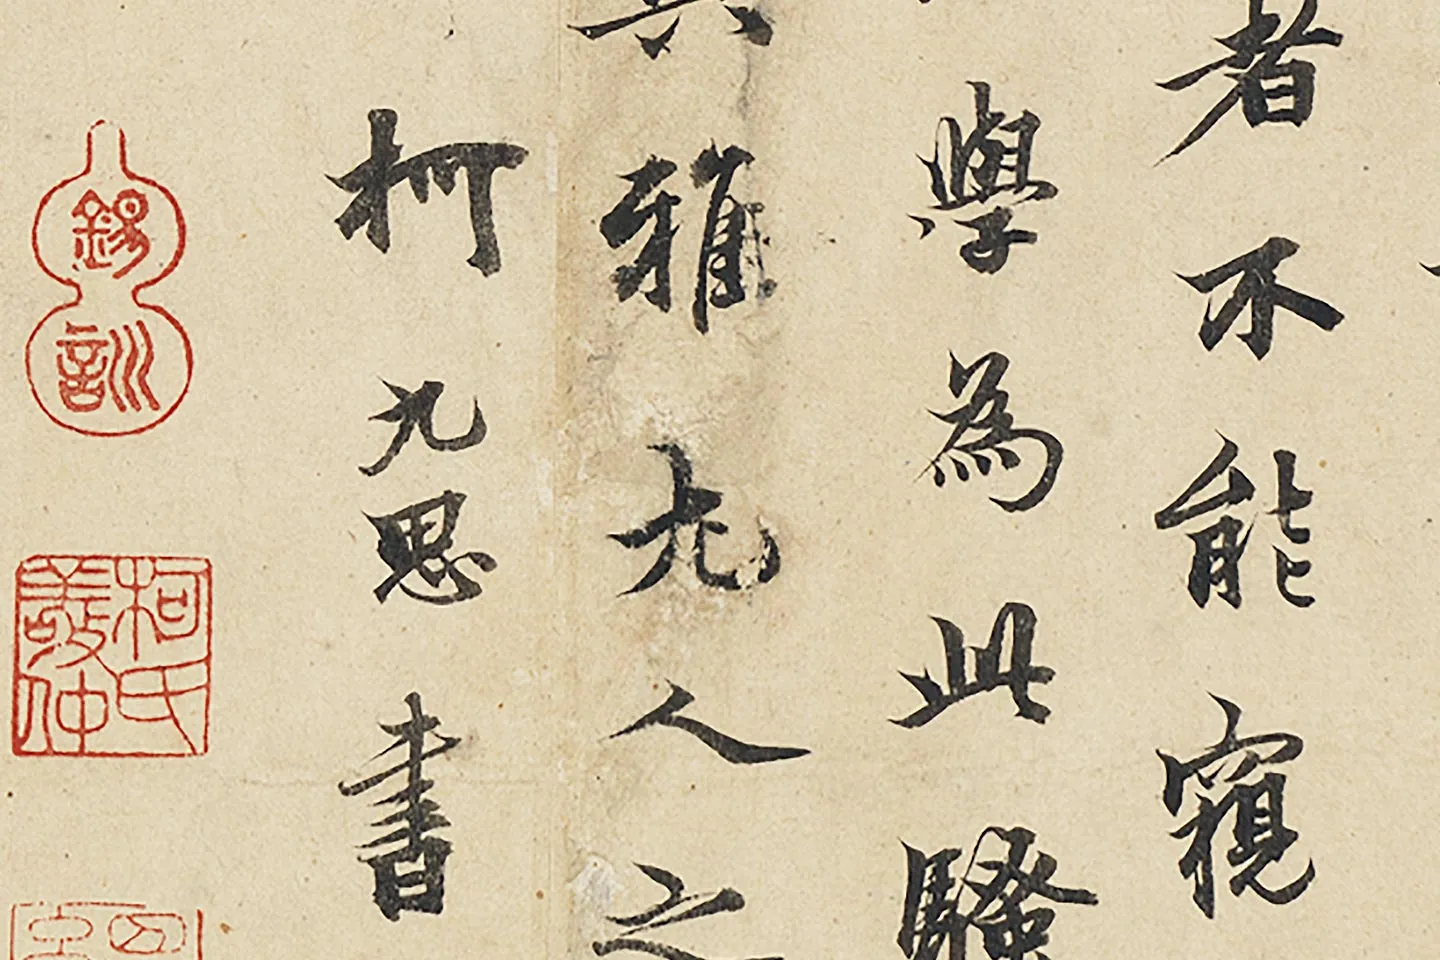 者不能窺
學為此騷
其雅尤人之
柯九思書
錫訓
柯氏敬仲